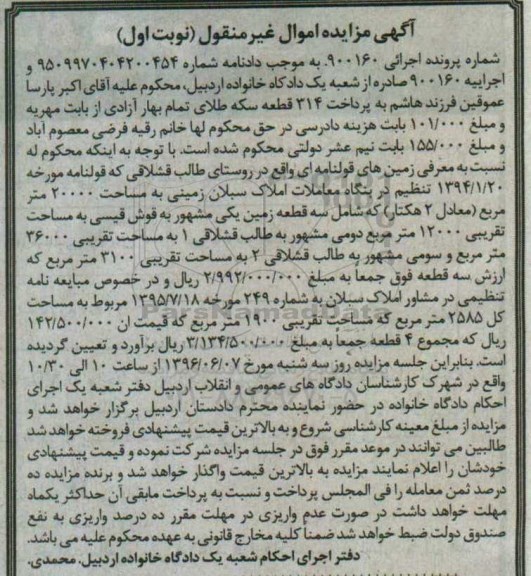 آگهی مزایده اموال غیر منقول (نوبت اول)
شماره پرونده اجرائی ۹۰۰۱۶۰. به موجب دادنامه شماره ۹۵۰۹۹۷۰۴۰۴۲۰۰۴۵۴ و
اجراییه ۹۰۰۱۶۰ صادره از شعبه یک دادگاه خانواده اردبیل، محکوم علیه آقای اکبر پارسا
عموقین فرزند هاشم به پرداخت ۳۱۴ قطعه سکه طلای تمام بهار آزادی از بابت مهریه
و مبلغ ۱۰۱/۰۰۰ بابت هزینه دادرسی در حق محکوم لها خانم رقیه فرضی معصوم آباد
و مبلغ ۱۵۵/۰۰۰ بابت نیم عشر دولتی محکوم شده است. با توجه به اینکه محکوم له
نسبت به معرفی زمین های قولنامه ای واقع در روستای طالب قشلاقی که قولنامه مورخه
۱۳۹۴/۱/۲۰ تنظیم در بنگاه معاملات املاک سبلان زمینی به مساحت ۲۰۰۰۰ متر
مربع (معادل ۲ هکتار) که شامل سه قطعه زمین یکی مشهور به قوش قیسی به مساحت
تقریبی ۱۲۰۰۰ متر مربع دومی مشهور به طالب قشلاقی ۱ به مساحت تقریبی ۳۶۰۰۰
متر مربع و سومی مشهور به طالب قشلاقی ۲ به مساحت تقریبی ۳۱۰۰ متر مربع که
ارزش سه قطعه فوق جمعا به مبلغ ۲/۹۹۲/۰۰۰/۰۰۰ ریال و در خصوص مبایعه نامه
تنظیمی در مشاور املاک سبلان به شماره ۲۴۹ مورخه ۱۳۹۵/۷/۱۸ مربوط به مساحت
کل ۲۵۸۵ متر مربع که مساحت تقریبی ۱۹۰۰ متر مربع که قیمت ان ۱۴۲/۵۰۰/۰۰۰
ریال که مجموع ۴ قطعه جمعا به مبلغ ۳/۱۳۴/۵۰۰/۰۰۰ ریال برآورد و تعیین گردیده
است. بنابراین جلسه مزایده روز سه شنبه مورخ ۱۳۹۶/۰۶/۰۷ از ساعت ۱۰ الی ۱۰/۳۰
واقع در شهرک کارشناسان دادگاه های عمومی و انقلاب اردبیل دفتر شعبه یک اجرای
احکام دادگاه خانواده در حضور نماینده محترم دادستان اردبیل برگزار خواهد شد و
مزایده از مبلغ معینه کارشناسی شروع و به بالاترین قیمت پیشنهادی فروخته خواهد شد
طالبین می توانند در موعد مقرر فوق در جلسه مزایده شرکت نموده و قیمت پیشنهادی
خودشان را اعلام نمایند مزایده به بالاترین قیمت واگذار خواهد شد و برنده مزایده ده
درصد ثمن معامله را فی المجلس پرداخت و نسبت به پرداخت مابقی آن حداکثر یکماه
مهلت خواهد داشت در صورت عدم واریزی در مهلت مقرر ده درصد واریزی به نفع
صندوق دولت ضبط خواهد شد ضمنا کلیه مخارج قانونی به عهده محکوم علیه می باشد.
دفتر اجرای احکام شعبه یک دادگاه خانواده اردبیل. محمدی.
ParsNamadData